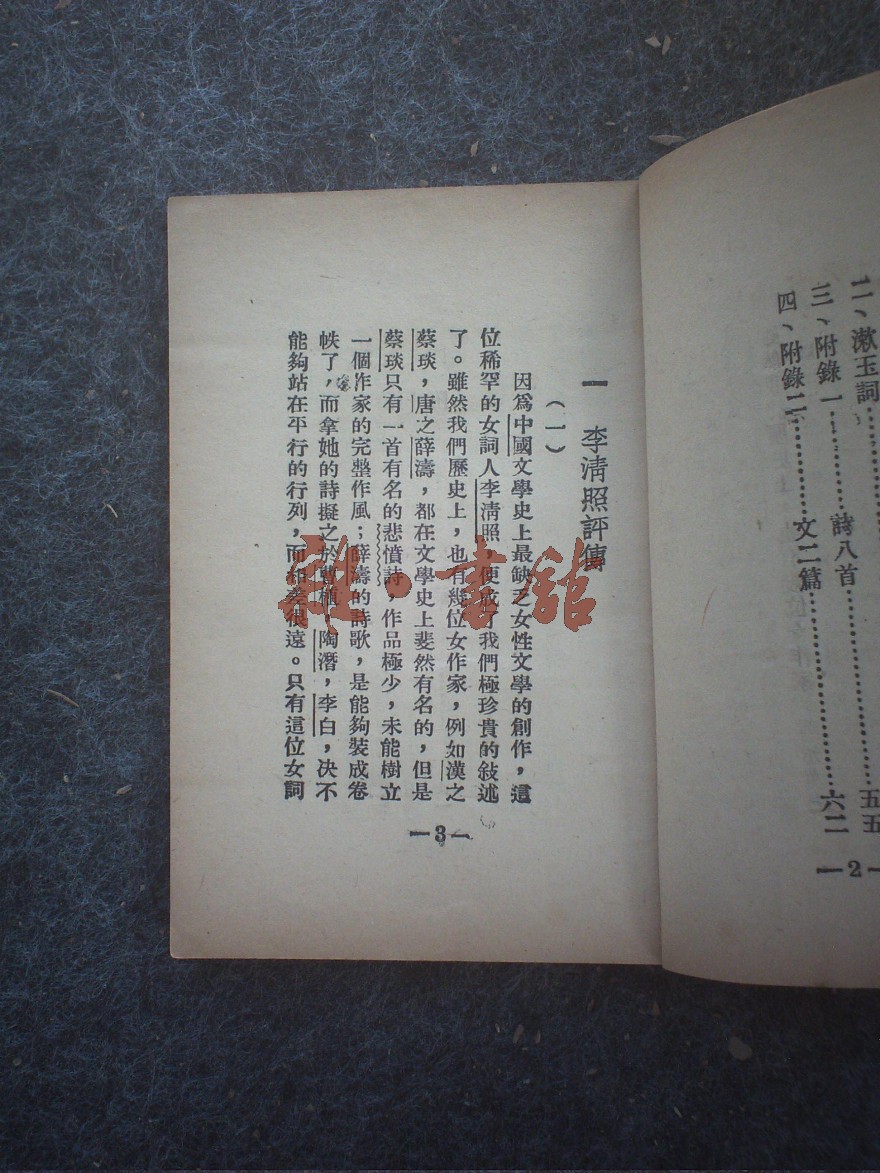 二、漱玉詞
三、附錄一………詩八首………五五
四、附錄二………文二篇………六二
—2—
一 李清照評傳
(一)
因爲中國文學史上最缺乏女性文學的創作，這
位稀罕的女詞人李清照，便成了我們極珍貴的敍述
了。雖然我們歷史上，也有幾位女作家，例如漢之
蔡琰，唐之薛濤，都在文學史上斐然有名的，但是
蔡琰只有一首有名的悲憤詩，作品極少，未能樹立
一個作家的完整作風；薛濤的詩歌，是能夠裝成卷
帙了，而拿她的詩擬之於曹植，陶潛，李白，决不
能夠站在平行的行列，而相差很遠。只有這位女詞
—3—
書館